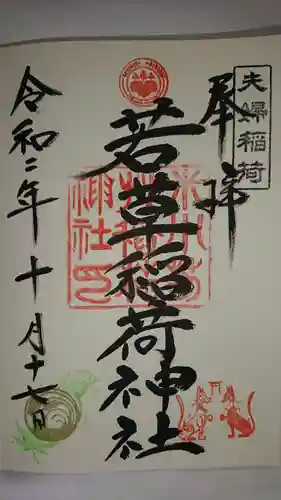 夫婦稲荷
奉拝
若草稲荷神社
令和二年十月十七日